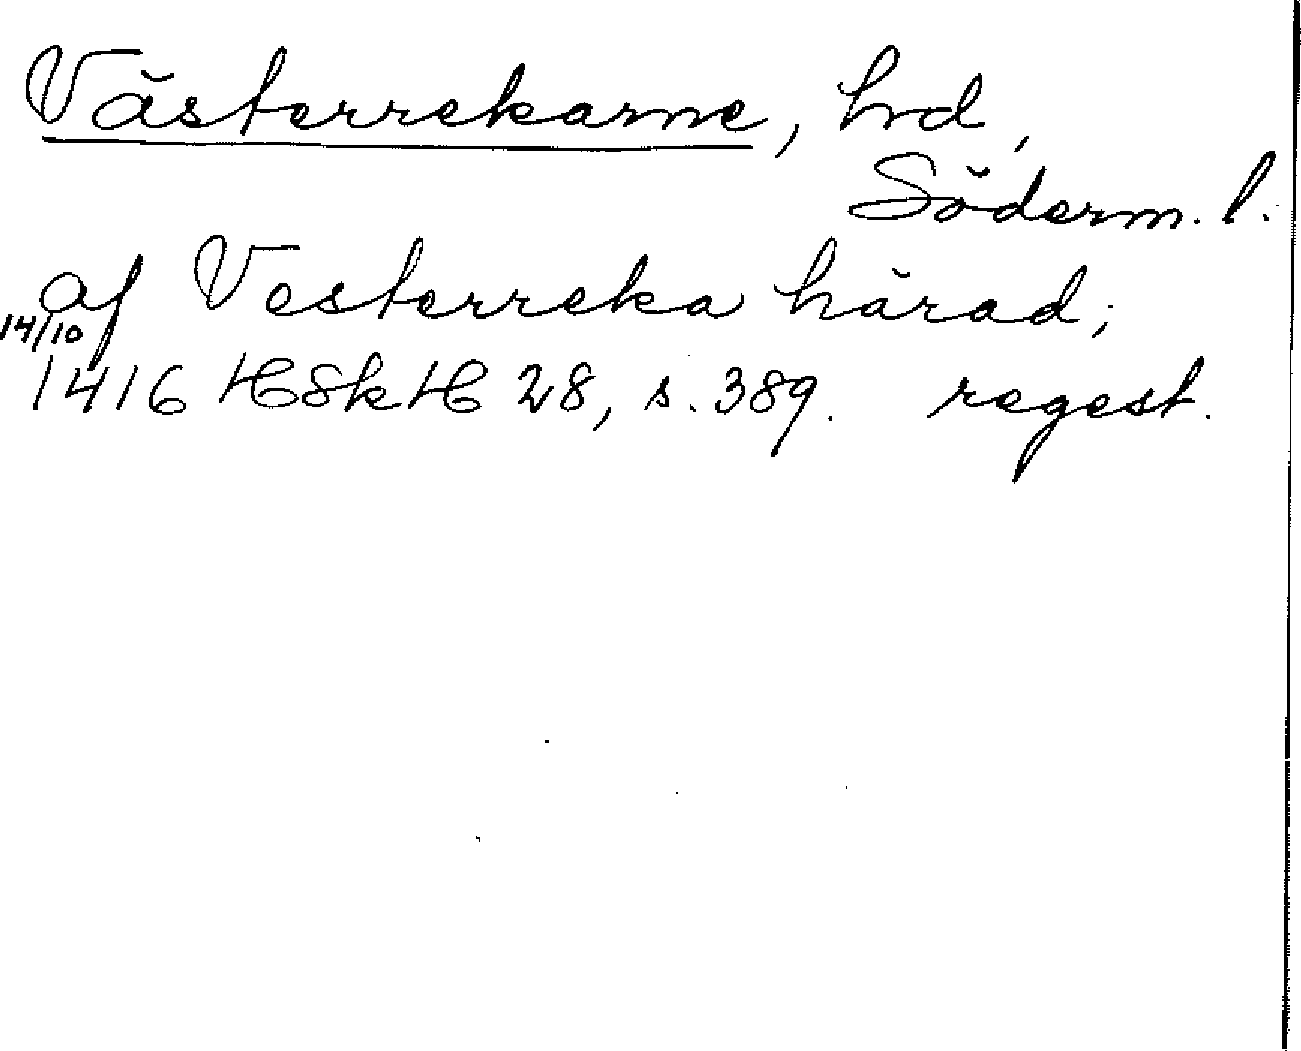 Västerrekarne, hd,
Söderm. l.
af Vesterreka härad;
14/10
1416 HSkH 28, s. 389. regest.